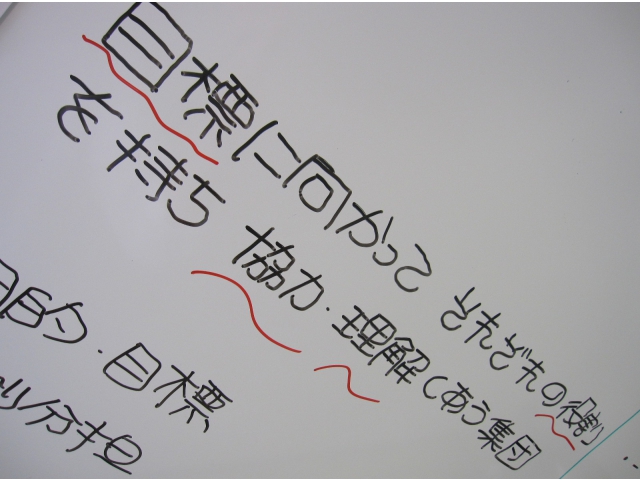 目標に向かって それぞれの役割
を持ち 協力・理解しあう集団
目的・目標
分担